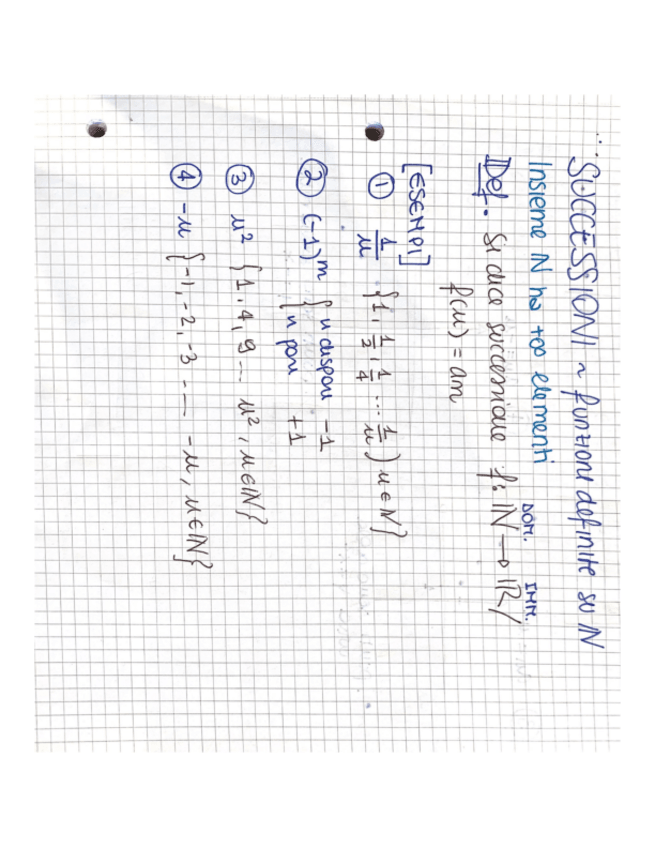 SUCCESSIONI ~ funzioni definite su N
Insieme N ha +∞ elementi
DOM. IMM.
Def. Si dice successione f: ℕ → ℝ /
f(n) = an
[ESEMPI]
① 1/n {1, 1/2, 1/4 ... 1/n) n ∈ N}
② (-1)^n { n dispari -1
{ n pari +1
③ n² {1, 4, 9 ... n², n∈ℕ}
④ -n {-1, -2, -3 ... -n, n∈ℕ}